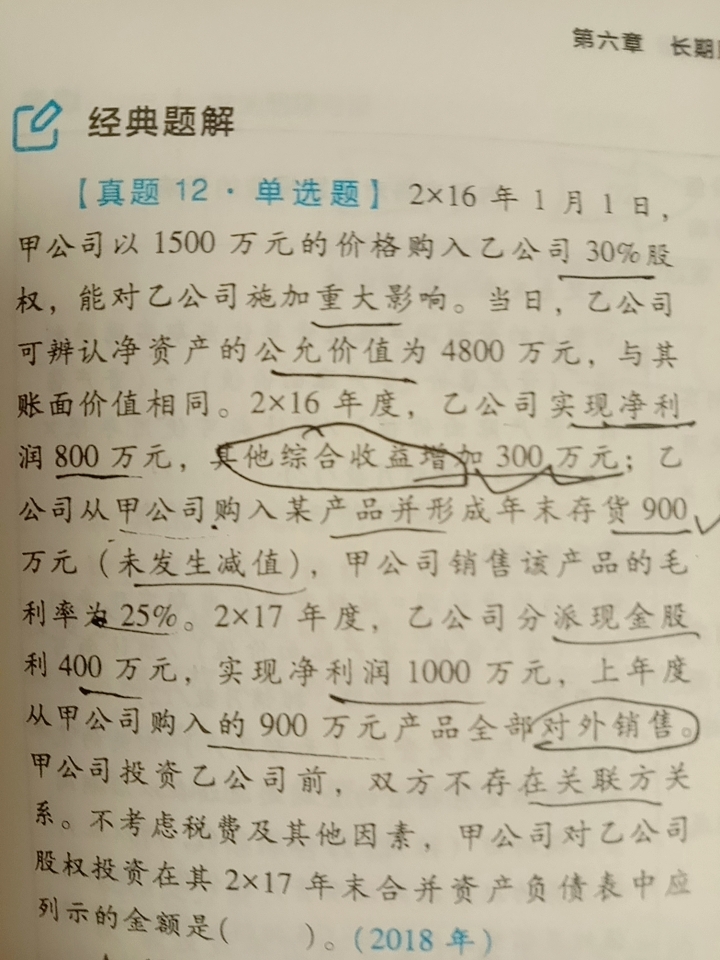 第六章 长期
经典题解
【真题12·单选题】2×16年1月1日，
甲公司以1500万元的价格购入乙公司30%股
权，能对乙公司施加重大影响。当日，乙公司
可辨认净资产的公允价值为4800万元，与其
账面价值相同。2×16年度，乙公司实现净利
润800万元，其他综合收益增加300万元；乙
公司从甲公司购入某产品并形成年末存货900
万元（未发生减值），甲公司销售该产品的毛
利率为25%。2×17年度，乙公司分派现金股
利400万元，实现净利润1000万元，上年度
从甲公司购入的900万元产品全部对外销售。
甲公司投资乙公司前，双方不存在关联方关
系。不考虑税费及其他因素，甲公司对乙公司
股权投资在其2×17年末合并资产负债表中应
列示的金额是(  )。(2018年)